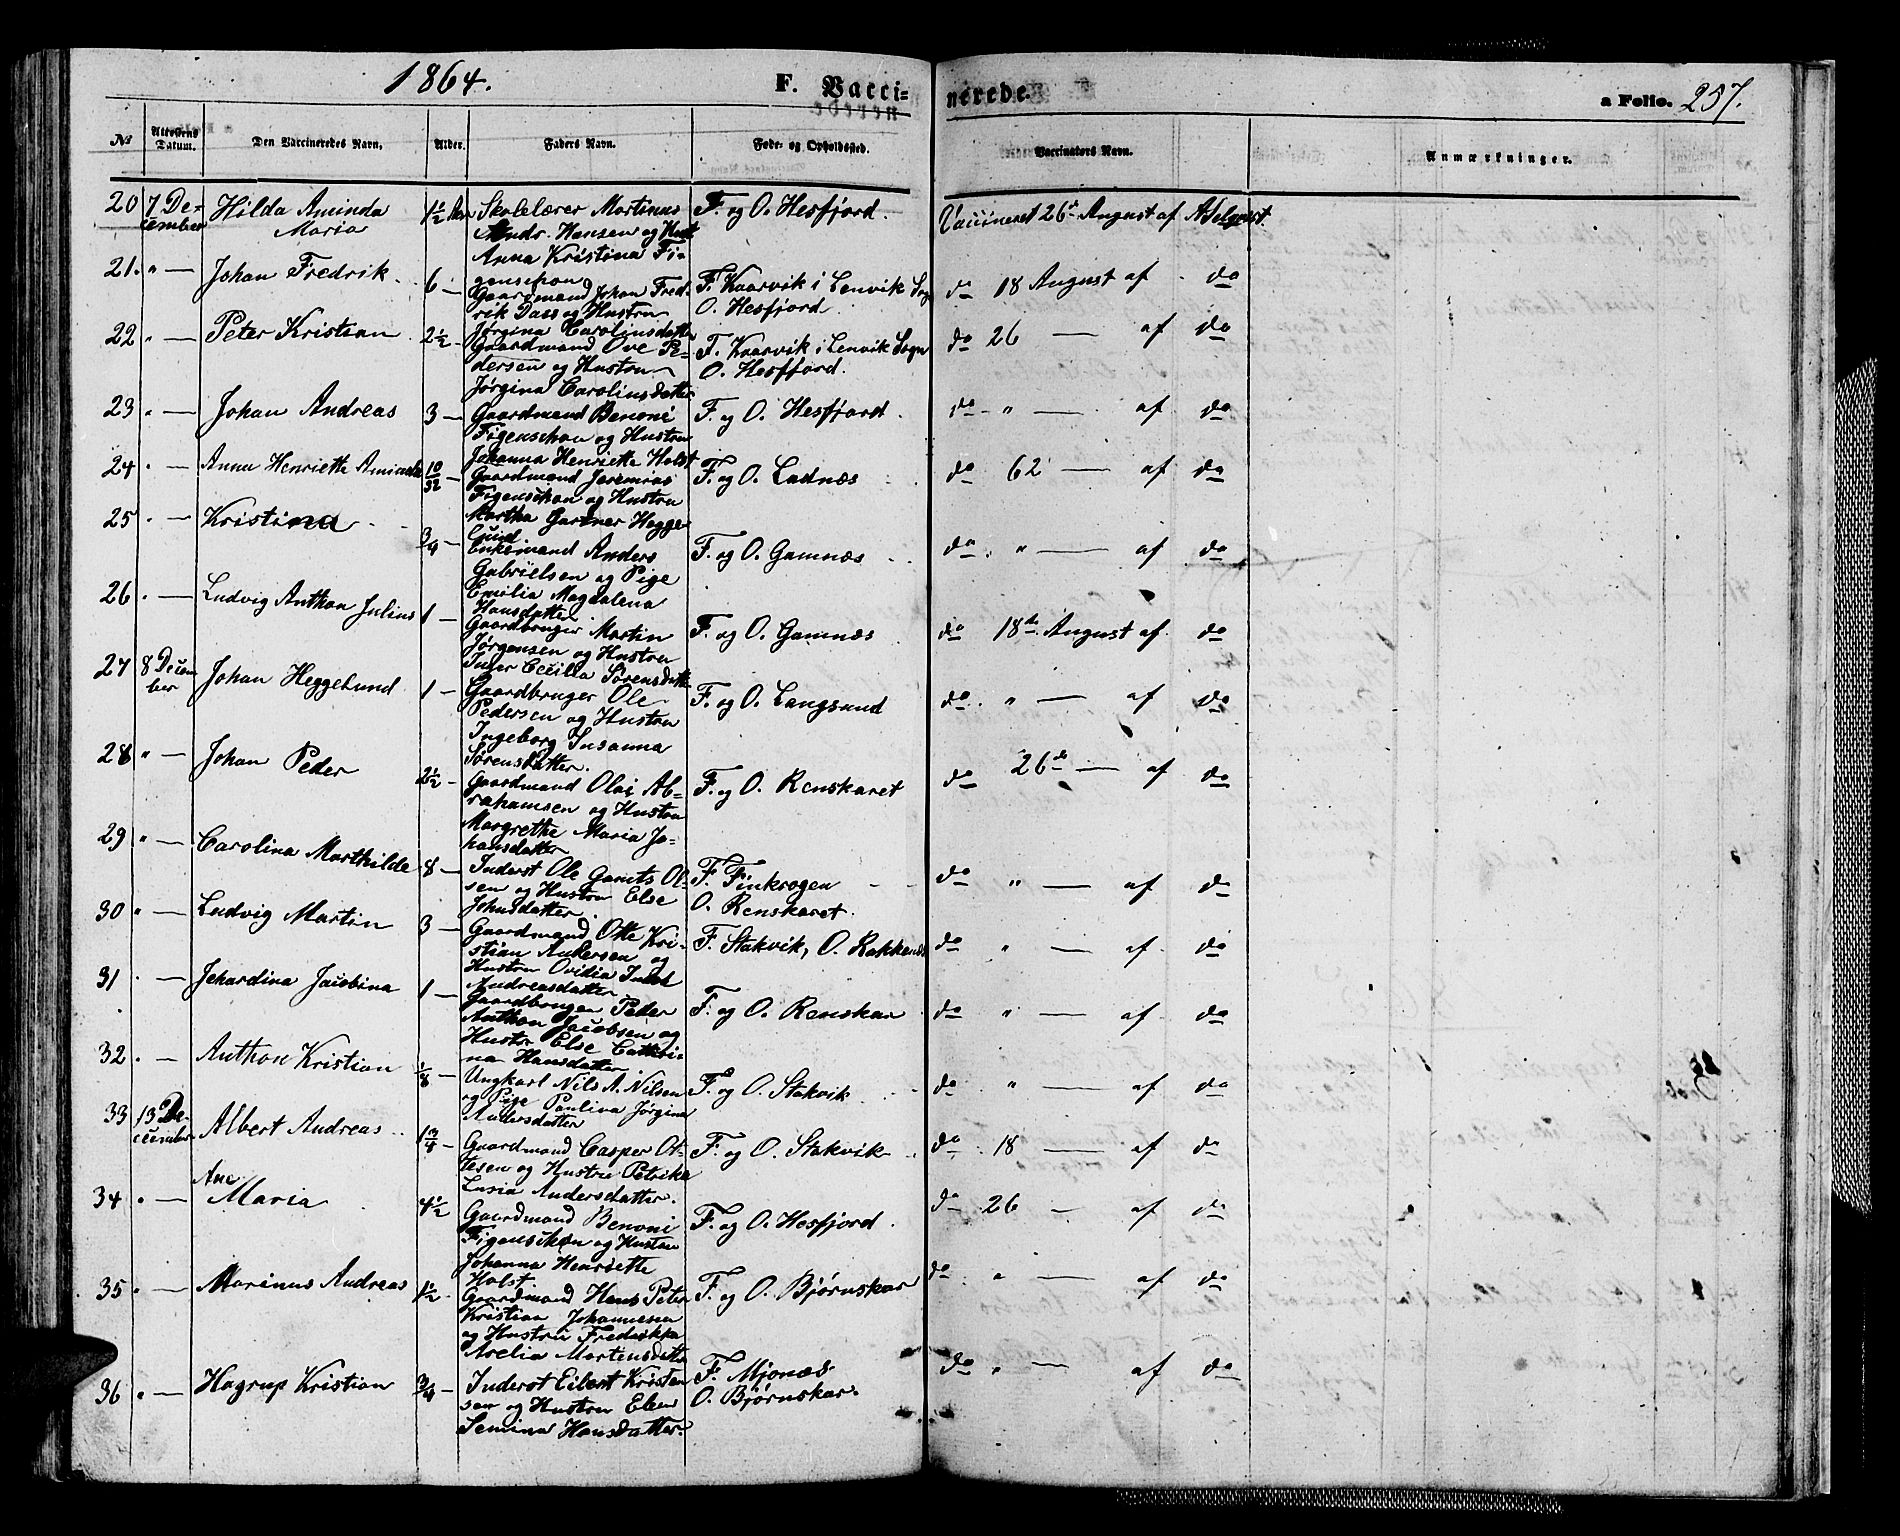 1864.
F. Vacci-
nerede.
a Folio. 257.
No
Attestens Datum.
Den Vaccineredes Navn,
Alder.
Faders Navn.
Føde- og Opholdssted.
Vaccinators Navn.
Anmærkninger.
20 7 De- Hilda Aminda 1½ Aar Skolelærer Martinus F. og O. Hesfjord. Vaccineret 26de August af
cember Maria Andr. Hansen og Hust
Anna Kristina Fi-
genschou
21. " — Johan Fredrik. 6 — Gaardmand Johan Fred- F. Kaarvik i Lenvik Sogn do 18 August af do
rik Dass og Hustru O. Hesfjord
Jørgina Carolinsdatter
22 " — Peter Kristian 2½ - Gaardmand Ove Pe- F. Kaarvik i Lenvik Sogn do 26 — af do
dersen og Hustru O. Hesfjord.
Jørgina Carolinsdatter
23 " — Johan Andreas 3 — Gaardmand Benoni F. og O. Hesfjord. do " — af do
Figenschou og Hustru
Johanna Henriette Holst
24 " — Anna Henriette Aminda 10/52 — Gaardmand Jeremias F. og O. Ladnæs do 62 — af do
Figenschou og Hustru
Martha Gartner Hegge-
lund
25 " — Kristina ¾ — Enkemand Anders F. og O. Gamnæs do " — af do
Gabrielsen og Pige
Emilia Magdalena
Hansdatter
26 " — Ludvig Anthon Julius 1 — Gaardbruger Martin F. og O. Gamnæs do 18de August af do
Jørgensen og Hustru
Inger Cecilia Sørensdatt
27 8 Decem- Johan Heggelund 1 — Gaardbruger Ole F. og O. Langsund do " — af do
ber Pedersen og Hustru
Ingeborg Susanna
Sørensdatter.
28 " — Johan Peder 2½ - Gaardmand Olai Ab- F. og O. Renskaret do 26de — af do
rahamsen og Hustru
Margrethe Maria Jo-
hansdatter
29 " — Carolina Marthilde 8 — Inderst Ole Gamts Ol- F. Finkrogen do " — af do
sen og Hustru Else O. Renskaret.
Johnsdatter
30 " — Ludvig Martin 3 — Gaardmand Otte Kri- F. Stakvik, O. do " — af do
stian Andersen og
Hustru Ovidia
Andreasdatter
31 " — Jehardina Jacobina 1 — Gaardbruger Peder F. og O. Renskar do " — af do
Anthon Jacobsen og
Hustr Else Cathri-
na Hansdatter
32 " — Anthon Kristian ⅛ — Ungkarl Nils A. Nilsen F. og O. Stakvik do " — af do
og Pige Paulina Jørgina
Andersdatter
33 13 De- Albert Andreas 1¾ — Gaardmand Casper Ot- F. og O. Stakvik do 18 — af do
cember tesen og Hustru Petrika
Lusia Andersdatter.
34 " — Ane Maria 4½ Gaardmand Benoni F. og O. Hesfjord do 26 — af do
Figenschou og Hustru
Johanna Henriette
Holst
35 " — Marinus Andreas 1½ - Gaardmand Hans Peter F. og O. Bjørnskar do " — af do
Kristian Johannesen
og Hustru Fredrikka
Arelia Mortensdatte
36 " — Hagrup Kristian ¾ — Inderst Eilert Kristen F. Mjonæs do " — af do
sen og Hustru Elen O. Bjørnskar.
Semina Hansdatter.